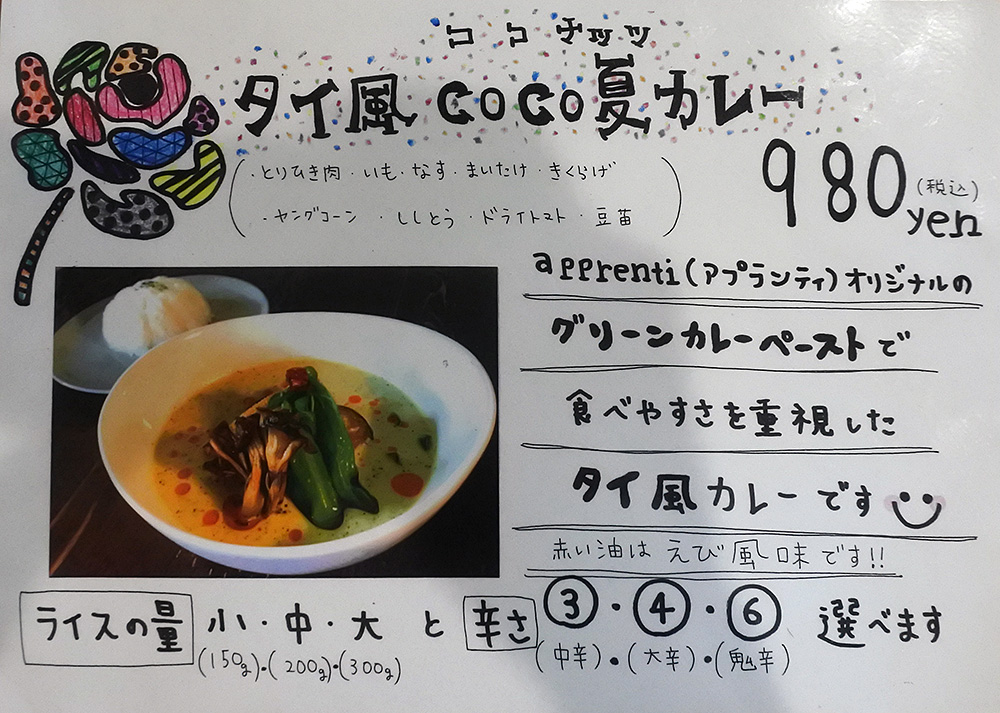 ココナッツ
タイ風 coco夏カレー
(・とりひき肉・いも・なす・まいたけ・きくらげ
・ヤングコーン・ししとう・ドライトマト・豆苗)
980yen(税込)
apprenti(アプランティ)オリジナルの
グリーンカレーペーストで
食べやすさを重視した
タイ風カレーです
赤い油はえび風味です!!
ライスの量 小・中・大 と 辛さ ③・④・⑥ 選べます
(150g)・(200g)・(300g) (中辛)・(大辛)・(鬼辛)